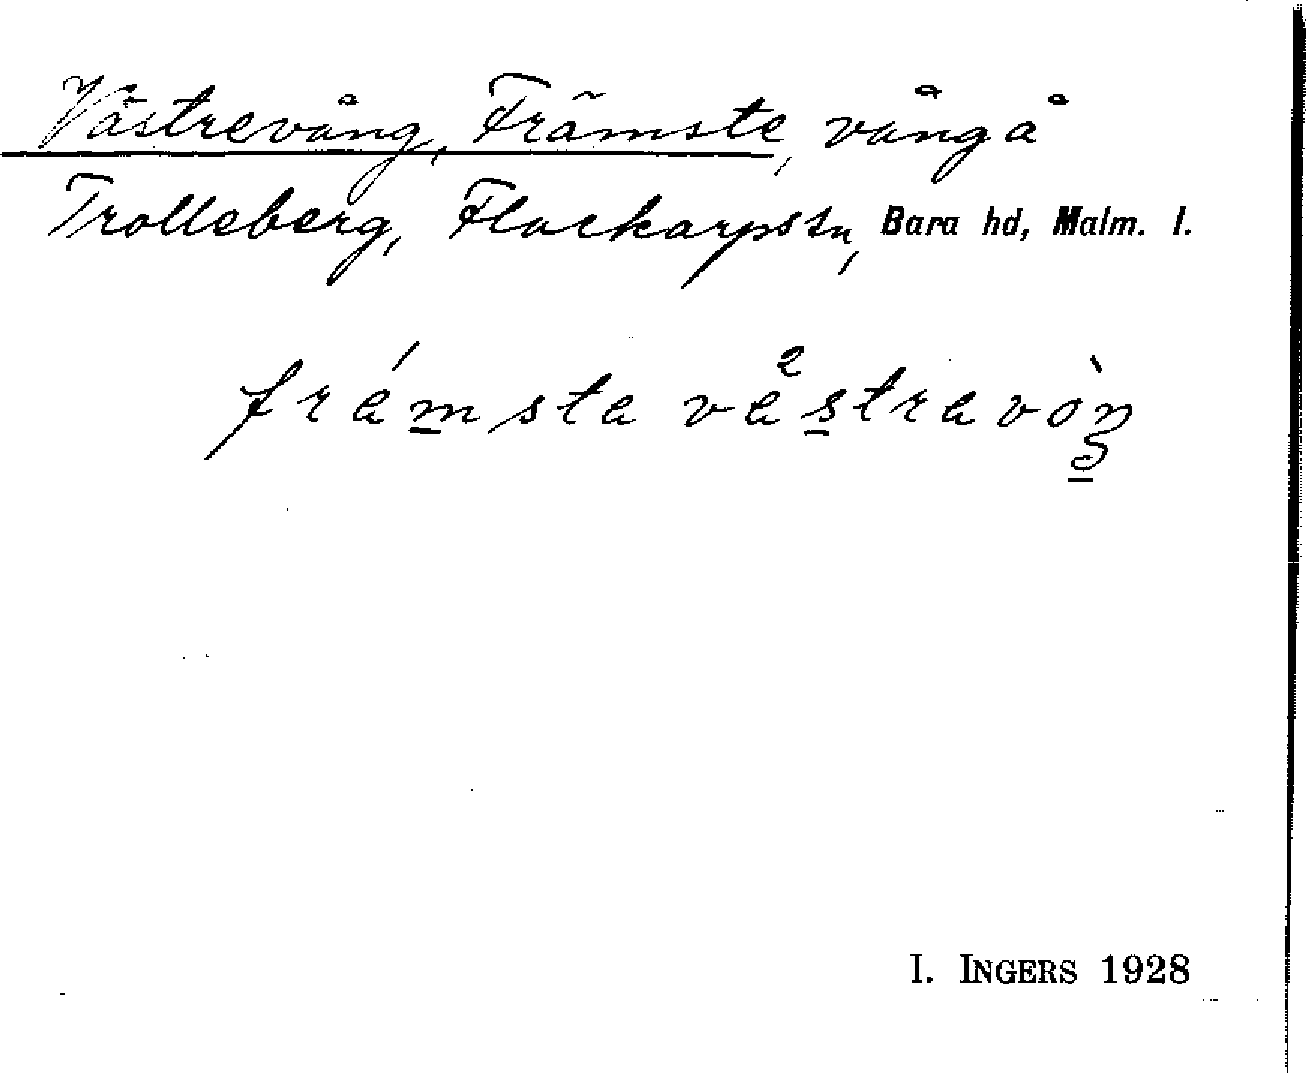 Västrevång, Främste, vång å
Trolleberg, Flackarps sn, Bara hd, Malm. l.
frámsta våstravòŋ
I. INGERS 1928